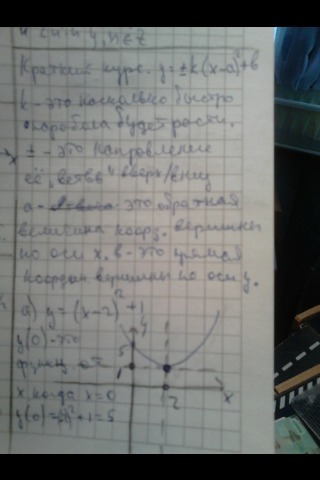 Краткий курс. y=±k(x-a)²+b
k - это насколько быстро
парабола будет расти.
± - это направление
её "ветвь" вверх/вниз
a - это обратная
величина коорд. вершины
по оси x, b - это прямая
коордан вершины по оси y.
a) y = (x-2)² + 1
y(0) - это
функц от
x, когда x=0
y(0) = 2²+1=5
y
5
1
2
x